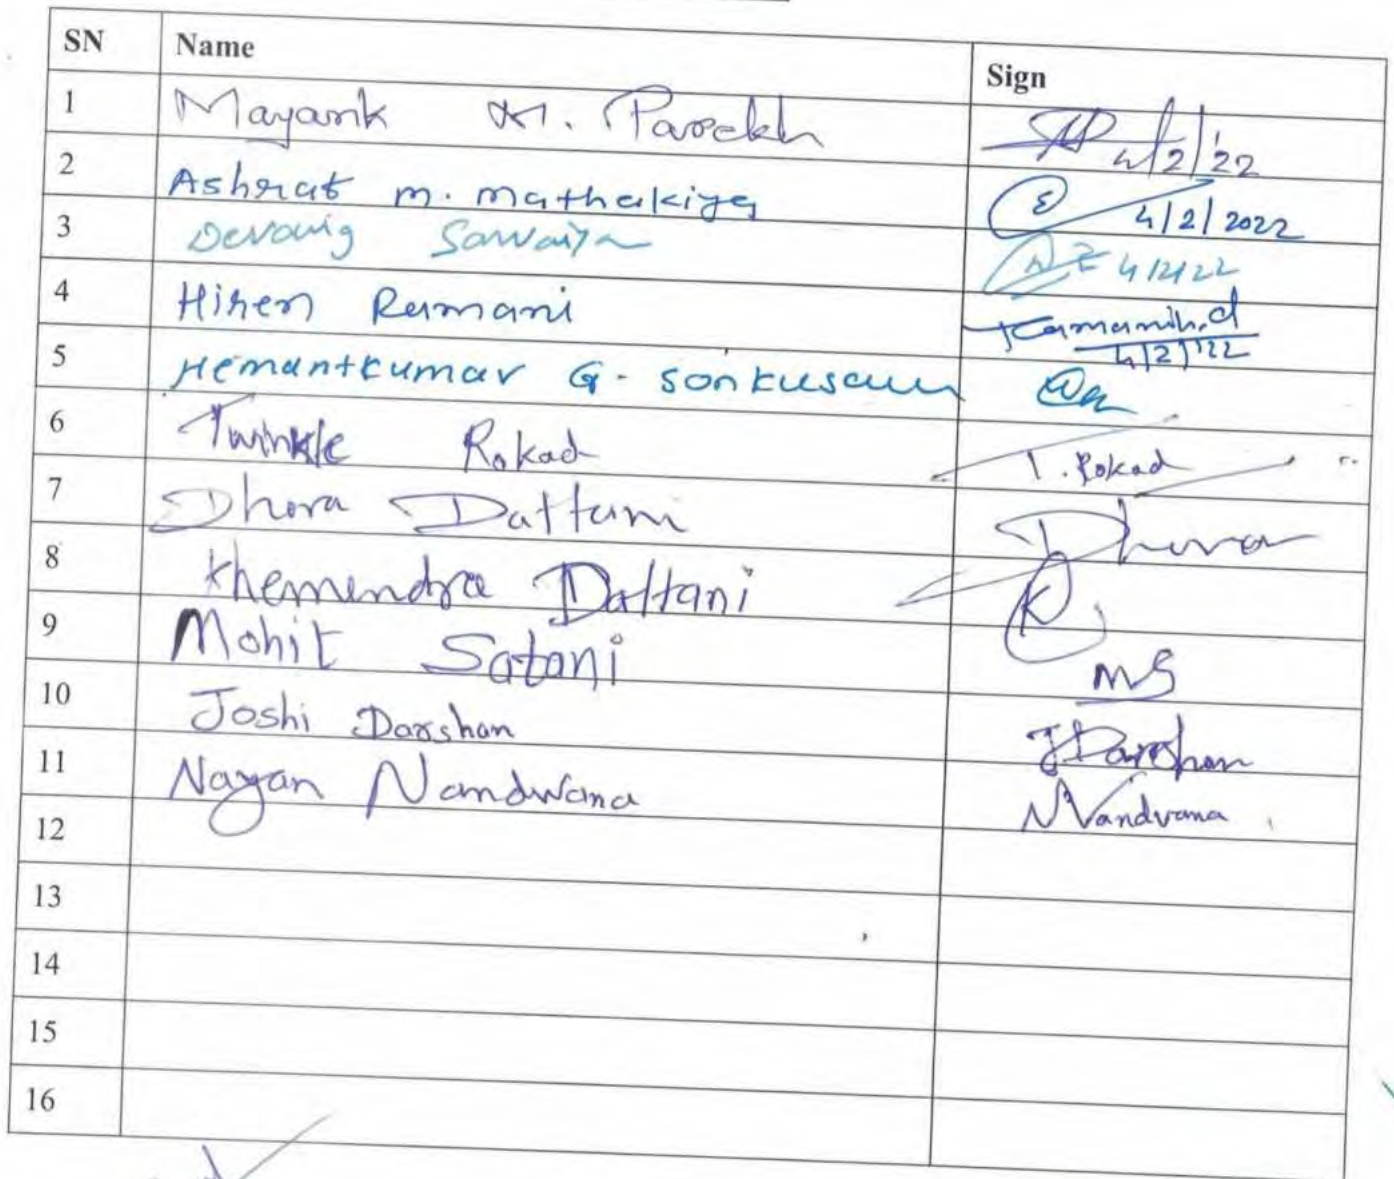 SN Name Sign
1 Mayank M. Parekh 4/2/'22
2 Ashraf m. mathakiya 4/2/2022
3 Devang Sarvaiya 4/2/22
4 Hiren Ramani Ramanih.d 4/2/'22
5 Hemantkumar G. Sonkusare
6 Twinkle Rokad T. Rokad
7 Dhora Dattani Dhora
8 Khemendra Dattani K
9 Mohit Satani MS
10 Joshi Darshan J Darshan
11 Nayan Nandwana N Nandvana
12
13
14
15
16